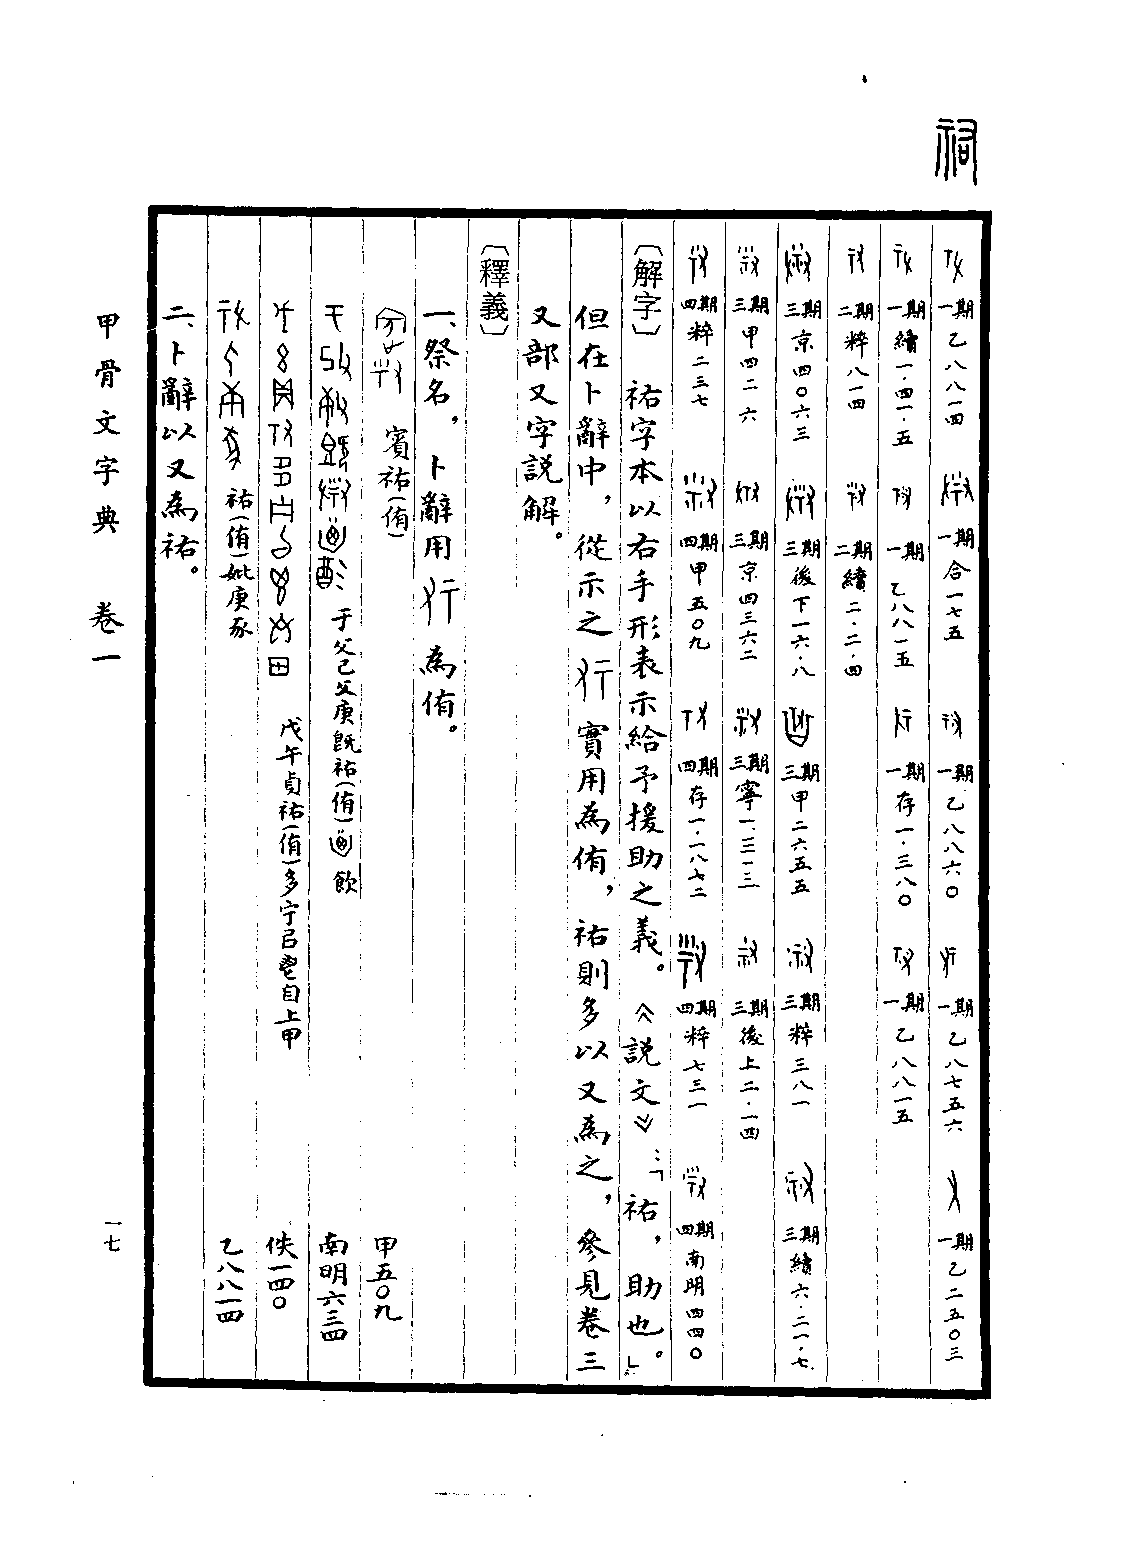 祐
一期 乙八八一四 一期 合一七五 一期 乙八八六〇 一期 乙八七五六 一期 乙二五〇三
一期 續一·四一·五 一期 乙八八一五 一期 存一·三八〇 一期 乙八八一五
二期 粹八一四 二期 續二·二·四
三期 京四〇六三 三期 後下一六·八 三期 甲二六五五 三期 粹三八一 三期 續六·二一·七
三期 甲四二六 三期 京四三六二 三期 寧一·三一三 三期 後上二·一四
四期 粹二三七 四期 甲五〇九 四期 存一·一八七二 四期 粹七三一 四期 南明四四〇
〔解字〕 祐字本以右手形表示給予援助之義。《説文》:「祐,助也。」
但在卜辭中,從示之 實用為侑,祐則多以又為之,參見卷三
又部又字説解。
〔釋義〕
一、祭名,卜辭用 為侑。
賓祐(侑) 甲五〇九
于父己父庚既祐(侑) 飲 南明六三四
戊午貞祐(侑)多宁㠯鬯自上甲 佚一四〇
祐(侑)妣庚豕 乙八八一四
二、卜辭以又為祐。
甲骨文字典 卷一
一七